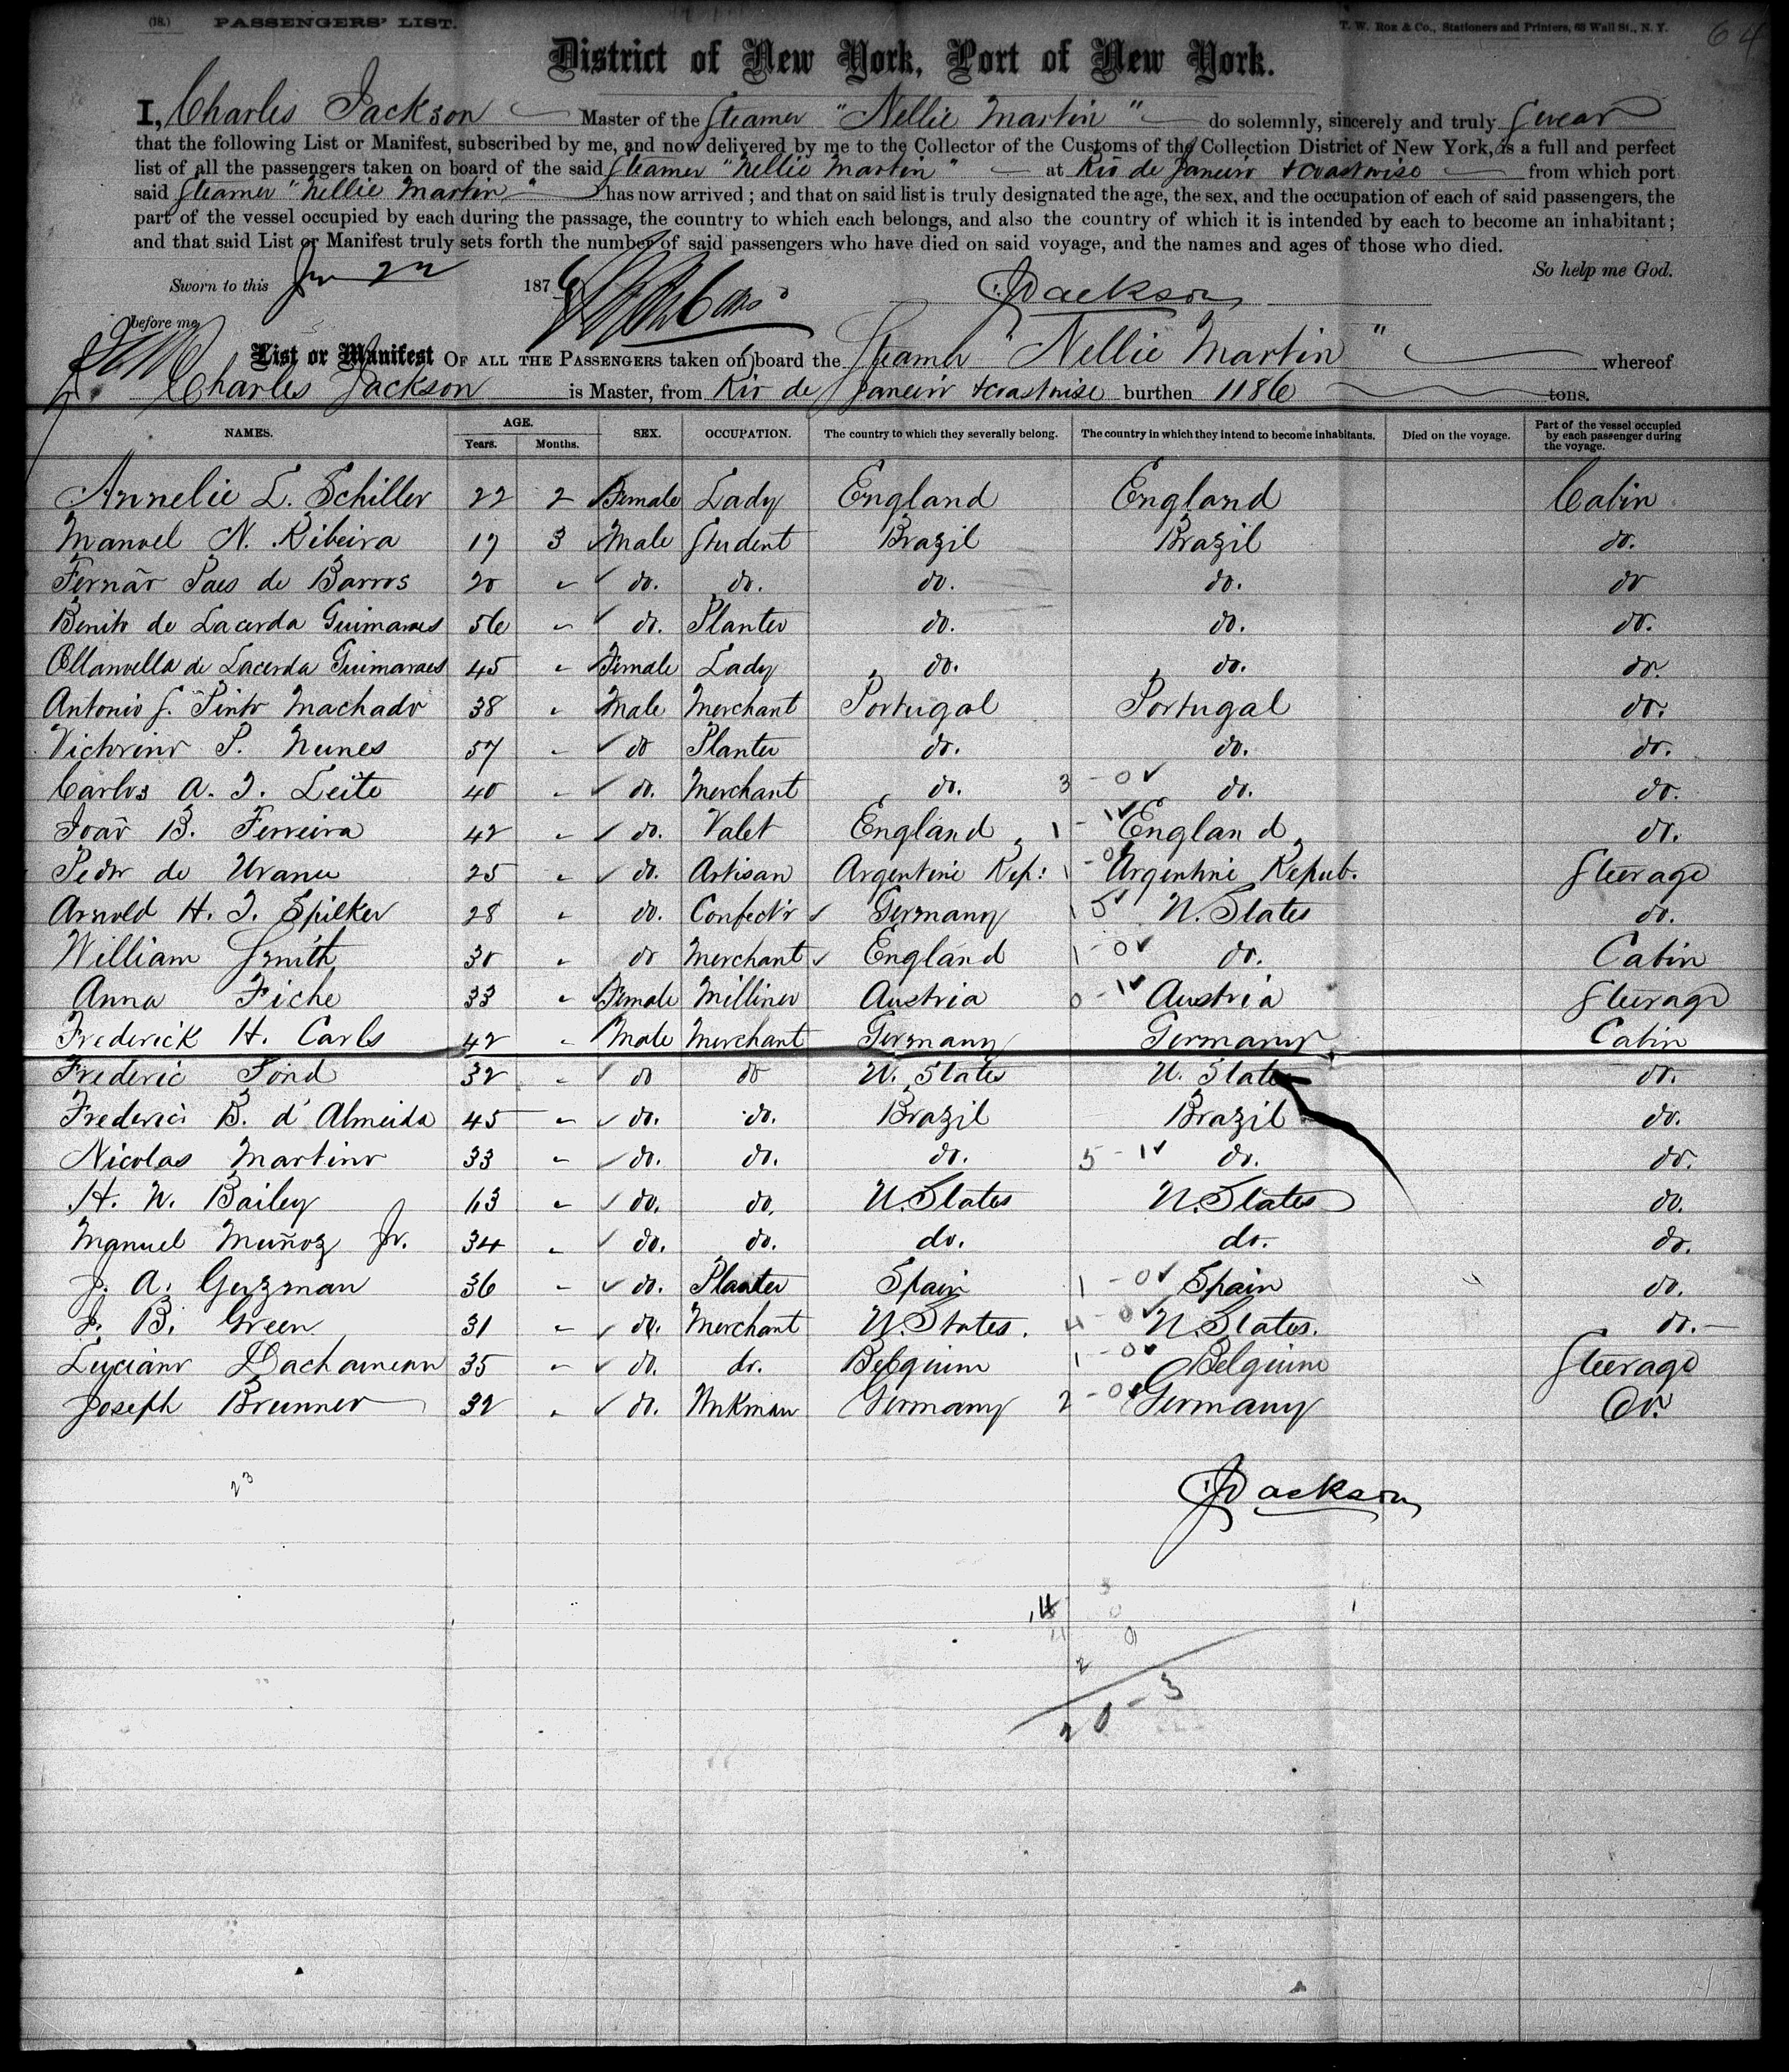 (18.) PASSENGERS' LIST. T. W. Roe & Co., Stationers and Printers, 63 Wall St., N. Y. 64
District of New York, Port of New York.
I, Charles Jackson Master of the Steamer "Nellie Martin" do solemnly, sincerely and truly swear
that the following List or Manifest, subscribed by me, and now delivered by me to the Collector of the Customs of the Collection District of New York, is a full and perfect
list of all the passengers taken on board of the said Steamer "Nellie Martin" at Rio de Janeiro & coastwise from which port
said Steamer "Nellie Martin" has now arrived; and that on said list is truly designated the age, the sex, and the occupation of each of said passengers, the
part of the vessel occupied by each during the passage, the country to which each belongs, and also the country of which it is intended by each to become an inhabitant;
and that said List or Manifest truly sets forth the number of said passengers who have died on said voyage, and the names and ages of those who died.
So help me God.
Sworn to this 22 1876 Jackson
before me
List or Manifest OF ALL THE PASSENGERS taken on board the Steamer "Nellie Martin" whereof
Charles Jackson is Master, from Rio de Janeiro & coastwise burthen 1186 tons.
NAMES. AGE. Years. Months. SEX. OCCUPATION. The country to which they severally belong. The country in which they intend to become inhabitants. Died on the voyage. Part of the vessel occupied by each passenger during the voyage.
Annelie L. Schiller 22 2 Female Lady England England Cabin
Manoel N. Ribeira 17 3 Male Student Brazil Brazil do.
Fernão Paes de Barros 20 " do. do. do. do. do
Benito de Lacerda Guimaraes 56 " do. Planter do. do. do.
Manuella de Lacerda Guimaraes 45 " Female Lady do. do. do.
Antonio J. Pinto Machado 38 " Male Merchant Portugal Portugal do.
Victorino P. Nunes 57 " do Planter do. do. do.
Carlos A. T. Leite 40 " do. Merchant do. 3 - 0 do. do.
João B. Ferreira 42 " do. Valet England 1 - 1 England do.
Pedro de 25 " do. Artisan Argentine Rep: 1 - 0 Argentine Repub. Steerage
Arnold H. T. Spilker 28 " do. Confect'r Germany U. States do.
William Smith 30 " do Merchant England 1 - 0 do. Cabin
Anna Fiche 33 " Female Milliner Austria 0 - 1 Austria Steerage
Frederick H. Carls 42 " Male Merchant Germany Germany Cabin
Frederic Fond 32 " do do U. States U. States do.
Frederico B. d'Almeida 45 " do. do. Brazil Brazil do.
Nicolas Martino 33 " do. do. do. 5 - 1 do. do.
H. W. Bailey 63 " do. do. U. States U. States do.
Manuel Muñoz Jr. 34 " do. do. do. do. do.
J. A. Guzman 36 " do. Planter Spain 1 - 0 Spain do.
J. B. Green 31 " do. Merchant U. States. 4 - 0 U. States. do.
Luciano 35 " do. do. Belguim 1 - 0 Belguim Steerage
Joseph Brunner 32 " do. Wrkman Germany 2 - 0 Germany do.
23
Jackson
20 - 3